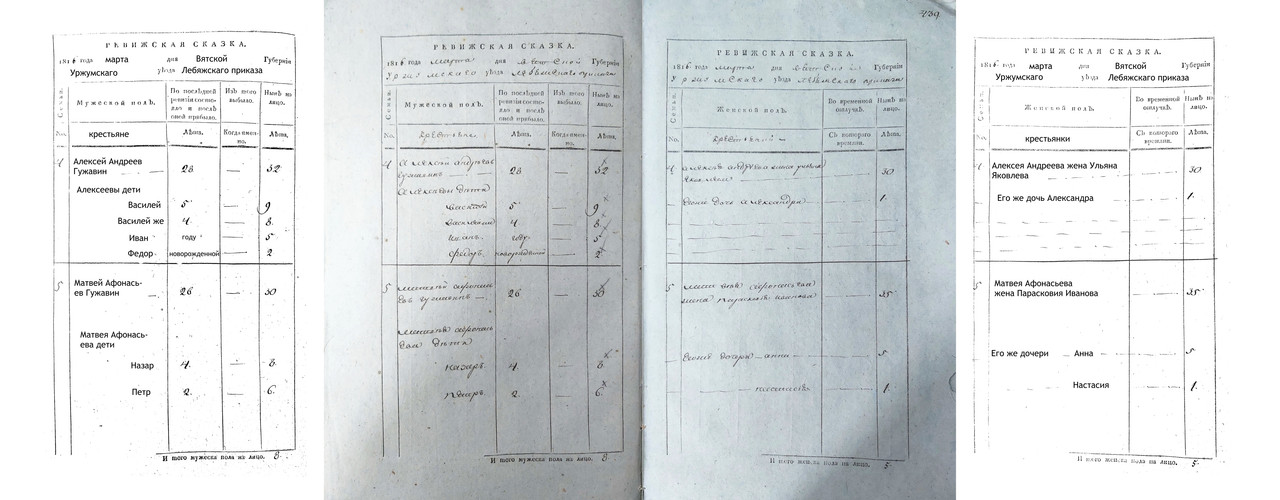 РЕВИЖСКАЯ СКАЗКА.
1816 года марта дня Вятской Губернїи
Уржумскаго уѣзда Лебяжского приказа
Мужеской полъ.
По послѣдней ревизїи состояло и послѣ оной прибыло.
Изъ того выбыло.
Нынѣ на лицо.
No. крестьяне Лѣта. Когда именно. Лѣта.
4 Алексей Андреев
Гужавин 28 — 32
Алексеевы дети
Василей 5 — 9
Василей же 4 — 8
Иван году — 5
Федор новорожденной — 2
5 Матвей Афонась-
ев Гужавин 26 — 30
Матвея Афонась-
ева дети
Назар 4 — 8
Петр 2 — 6
И того мужеска пола на лицо. 8
РЕВИЖСКАЯ СКАЗКА.
1816 года марта дня Вятской Губернїи
Уржумскаго уѣзда
Мужеской полъ.
По послѣдней ревизїи состояло и послѣ оной прибыло.
Изъ того выбыло.
Нынѣ на лицо.
No. крестьяне Лѣта. Когда именно. Лѣта.
4 Алексей Андреев
28 — 32
Алексеевы дети
Василей 5 — 9
4 — 8
Иванъ году — 5
Федоръ — 2
5 26 — 30
Назаръ 4 — 8
Петръ 2 — 6
И того мужеска пола на лицо. 8
239
РЕВИЖСКАЯ СКАЗКА.
1816 года марта дня Вятской Губернїи
Уржумскаго уѣзда
Женской полъ.
Во временной отлучкѣ.
Нынѣ на лицо.
No. Съ котораго времени. Лѣта.
4 30
дочь Александра 1
5 25
анна 5
1
И того женска пола на лицо. 5
РЕВИЖСКАЯ СКАЗКА.
1816 года марта дня Вятской Губернїи
Уржумскаго уѣзда Лебяжского приказа
Женской полъ.
Во временной отлучкѣ.
Нынѣ на лицо.
No. крестьянки Съ котораго времени. Лѣта.
4 Алексея Андреева жена Ульяна
Яковлева 30
Его же дочь Александра 1
5 Матвея Афонасьева
жена Парасковия Иванова 25
Его же дочери Анна 5
Настасия 1
И того женска пола на лицо. 5